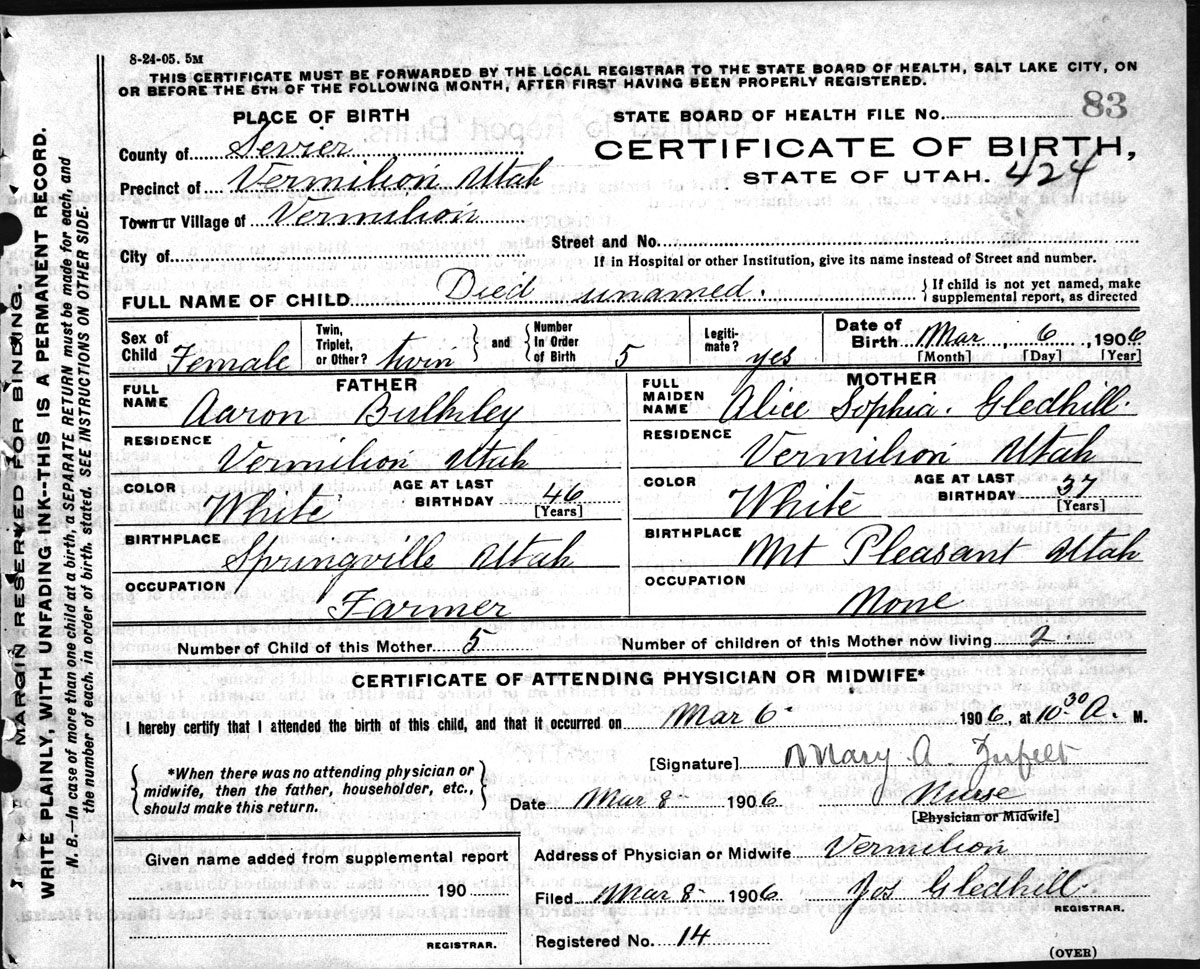 8-24-05. 5M
THIS CERTIFICATE MUST BE FORWARDED BY THE LOCAL REGISTRAR TO THE STATE BOARD OF HEALTH, SALT LAKE CITY, ON
OR BEFORE THE 5TH OF THE FOLLOWING MONTH, AFTER FIRST HAVING BEEN PROPERLY REGISTERED.
MARGIN RESERVED FOR BINDING.
WRITE PLAINLY, WITH UNFADING INK--THIS IS A PERMANENT RECORD.
N. B.--In case of more than one child at a birth, a SEPARATE RETURN must be made for each, and
the number of each, in order of birth, stated. SEE INSTRUCTIONS ON OTHER SIDE.
PLACE OF BIRTH
STATE BOARD OF HEALTH FILE No. 83
County of Sevier
CERTIFICATE OF BIRTH,
Precinct of Vermilion Utah
STATE OF UTAH. 424
Town or Village of Vermilion
Street and No.
City of
If in Hospital or other Institution, give its name instead of Street and number.
FULL NAME OF CHILD Died unamed. {If child is not yet named, make
supplemental report, as directed
Sex of Child Female
Twin, Triplet, or Other? twin
and
Number In Order of Birth 5
Legiti-mate? yes
Date of Birth Mar 6, 1906
[Month] [Day] [Year]
FATHER
FULL NAME Aaron Bulkley
RESIDENCE Vermilion Utah
COLOR White AGE AT LAST BIRTHDAY 46
[Years]
BIRTHPLACE Springville Utah
OCCUPATION Farmer
MOTHER
FULL MAIDEN NAME Alice Sophia Gledhill
RESIDENCE Vermilion Utah
COLOR White AGE AT LAST BIRTHDAY 37
[Years]
BIRTHPLACE Mt Pleasant Utah
OCCUPATION None
Number of Child of this Mother 5 Number of children of this Mother now living 2
CERTIFICATE OF ATTENDING PHYSICIAN OR MIDWIFE*
I hereby certify that I attended the birth of this child, and that it occurred on Mar 6 1906, at 10 30 A. M.
{*When there was no attending physician or
midwife, then the father, householder, etc.,
should make this return.}
[Signature] Mary A. Zufelt
Date Mar 8 1906 Nurse
[Physician or Midwife]
Given name added from supplemental report
190
REGISTRAR.
Address of Physician or Midwife Vermilion
Filed Mar 8 1906 Jos Gledhill
REGISTRAR.
Registered No. 14
(OVER)